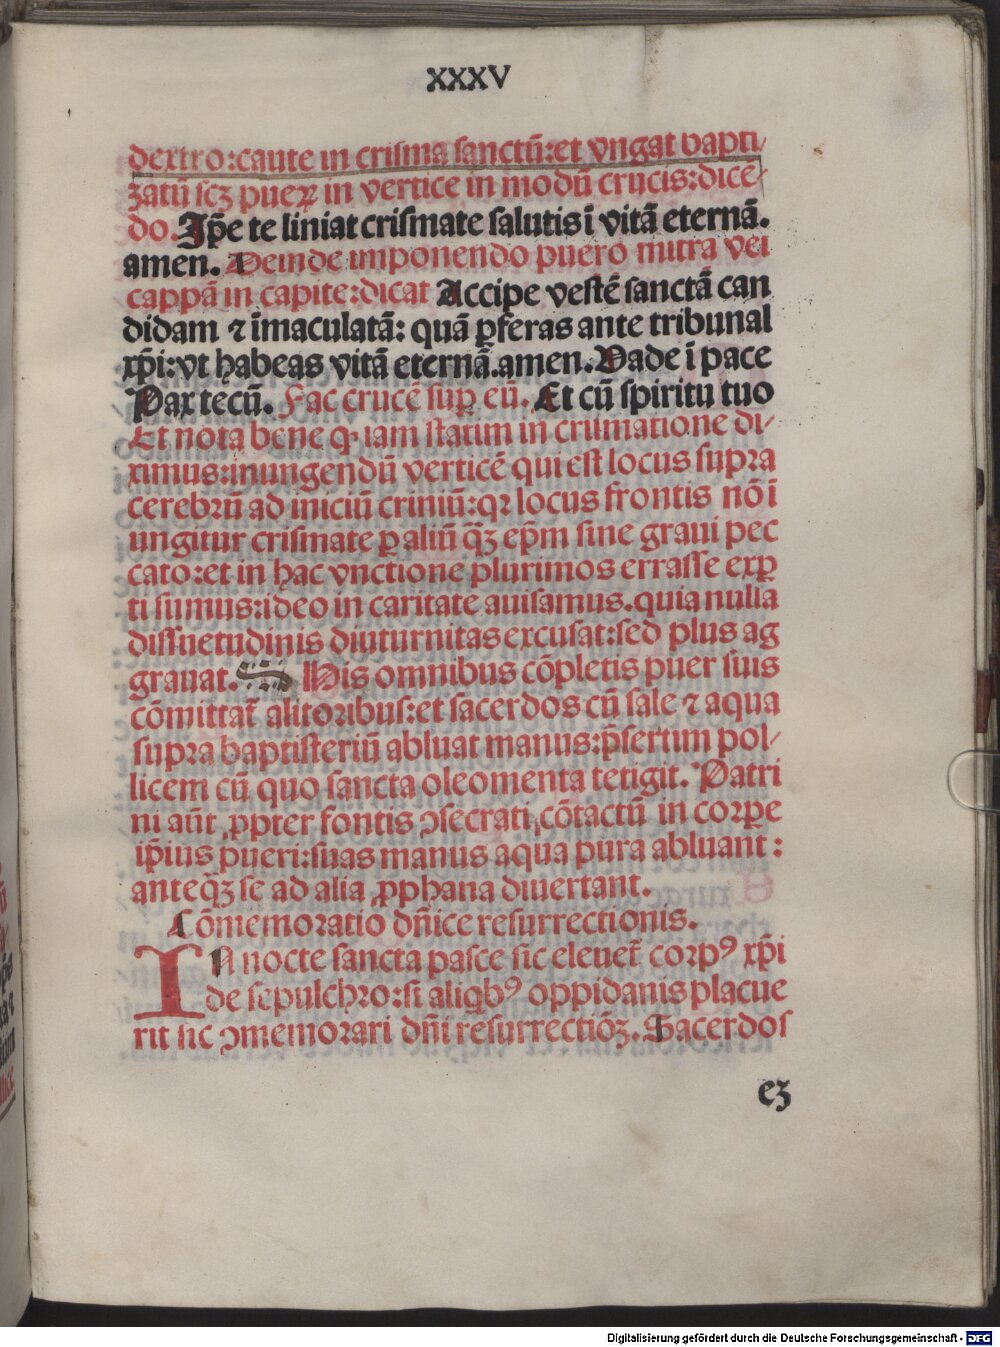 XXXV
dextro:caute in crisma sanctū:et vngat bapti/
zatū scꝫ pueꝝ in vertice in modū crucis:dicē/
do. Ip̄e te liniat crismate salutis ī vitā eternā.
amen. Deinde imponendo puero mitra vel
cappā in capite:dicat Accipe vestē sanctā can
didam ⁊ īmaculatā: quā ꝑferas ante tribunal
xp̄i:vt habeas vitā eternā.amen. Vade ī pace
Pax tecū. Fac crucē suꝑ eū. Et cū spiritu tuo
Et nota bene ꝙ iam statim in crismatione di/
ximus:inungendū verticē qui est locus supra
cerebrū ad iniciū criniū:qꝛ locus frontis nō ī
ungitur crismate ꝑ aliū qꝫ ep̄m sine graui pec
cato:et in hac vnctione plurimos errasse exꝑ
ti sumus:ideo in caritate auisamus.quia nulla
dissuetudinis diuturnitas excusat:sed plus ag
grauat. His omnibus cōpletis puer suis
cōmittat̄ alitoribus:et sacerdos cū sale ⁊ aqua
supra baptisteriū abluat manus:p̄sertim pol/
licem cū quo sancta oleomenta tetigit. Patri
ni aūt ꝓpter fontis ꝯsecrati cōtactū in corꝑe
ip̄ius pueri:suas manus aqua pura abluant :
anteqꝫ se ad alia ꝓphana diuertant.
Cōmemoratio dn̄ice resurrectionis.
IN nocte sancta pasce sic eleuet̄ corpꝰ xp̄i
de sepulchro:si aliqbꝰ oppidanis placue
rit sic ꝯmemorari dn̄i resurrectiōꝫ. Sacerdos
eꝫ
Digitalisierung gefördert durch die Deutsche Forschungsgemeinschaft - DFG